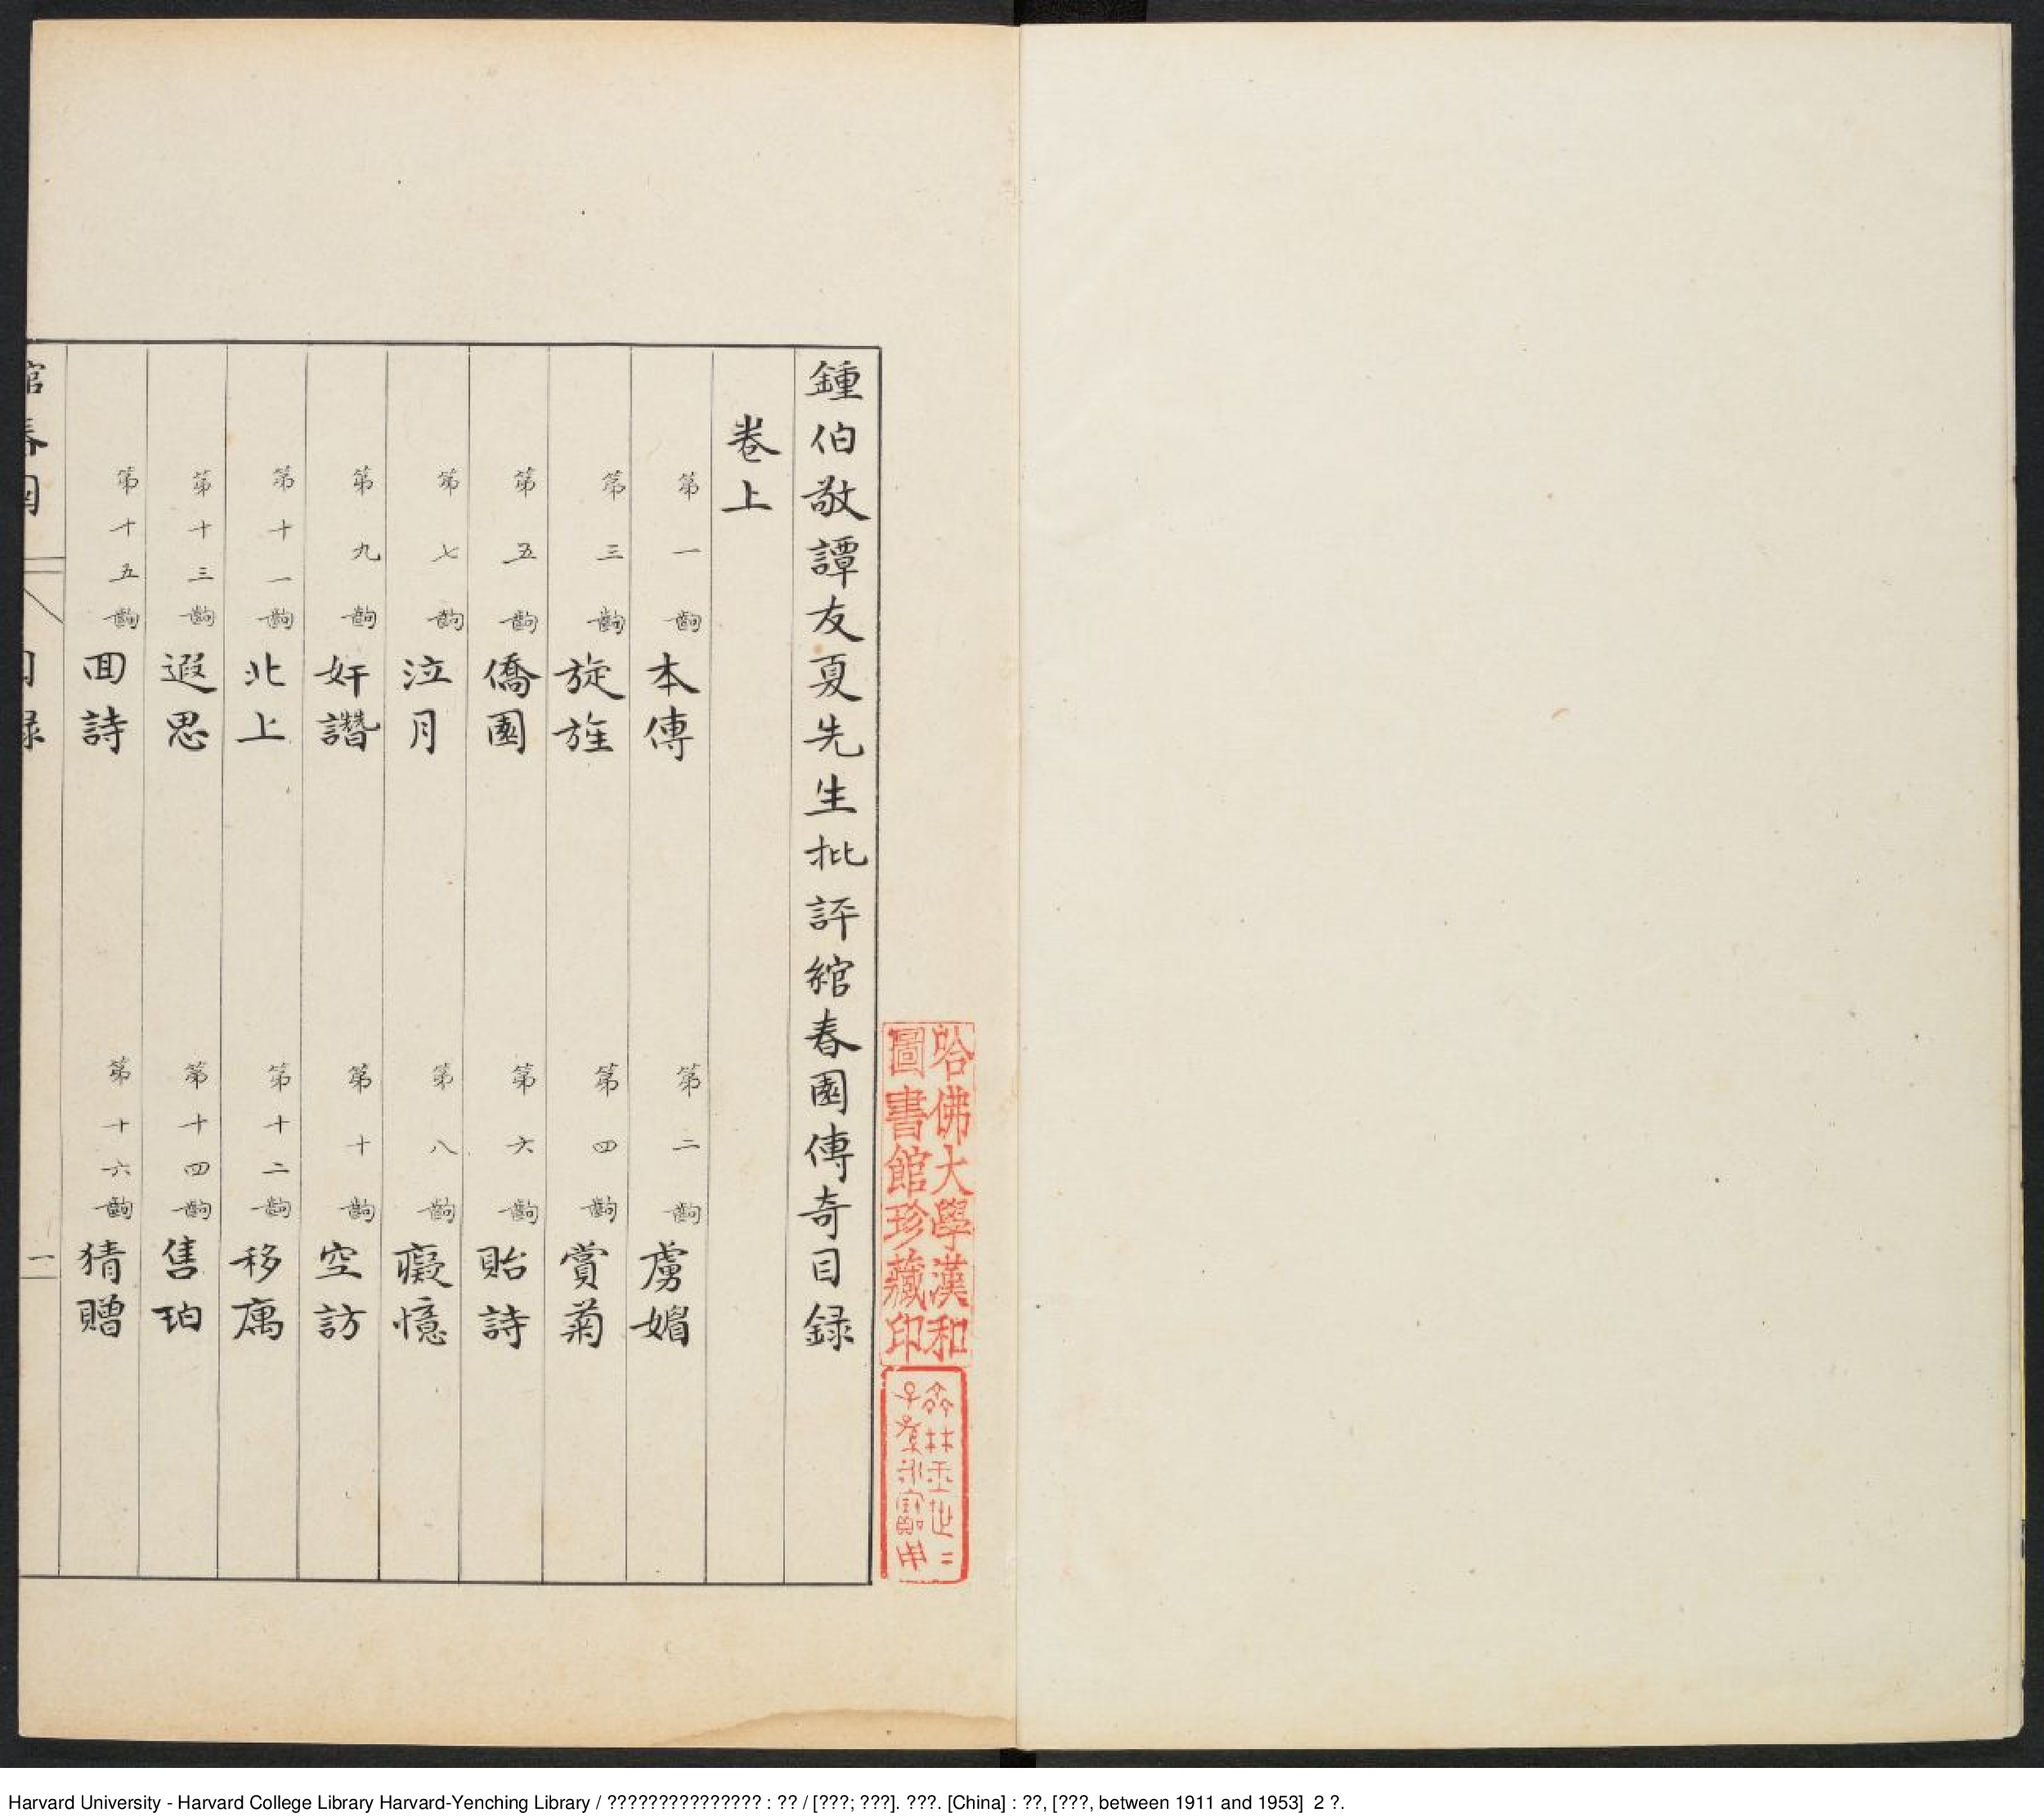 鍾伯敬譚友夏先生批評綰春園傳奇目録
卷上
第一齣 本傳 第二齣 虜媚
第三齣 旋旌 第四齣 賞菊
第五齣 僑園 第六齣 貽詩
第七齣 泣月 第八齣 癡憶
第九齣 奸讒 第十齣 空訪
第十一齣 北上 第十二齣 移寓
第十三齣 遐思 第十四齣 售珀
第十五齣 囬詩 第十六齣 猜贈
綰春園 目録 一
哈佛大學漢和
圖書館珍藏印
Harvard University - Harvard College Library Harvard-Yenching Library / ??????????????? : ?? / [???; ???]. ???. [China] : ??, [???, between 1911 and 1953] 2 ?.